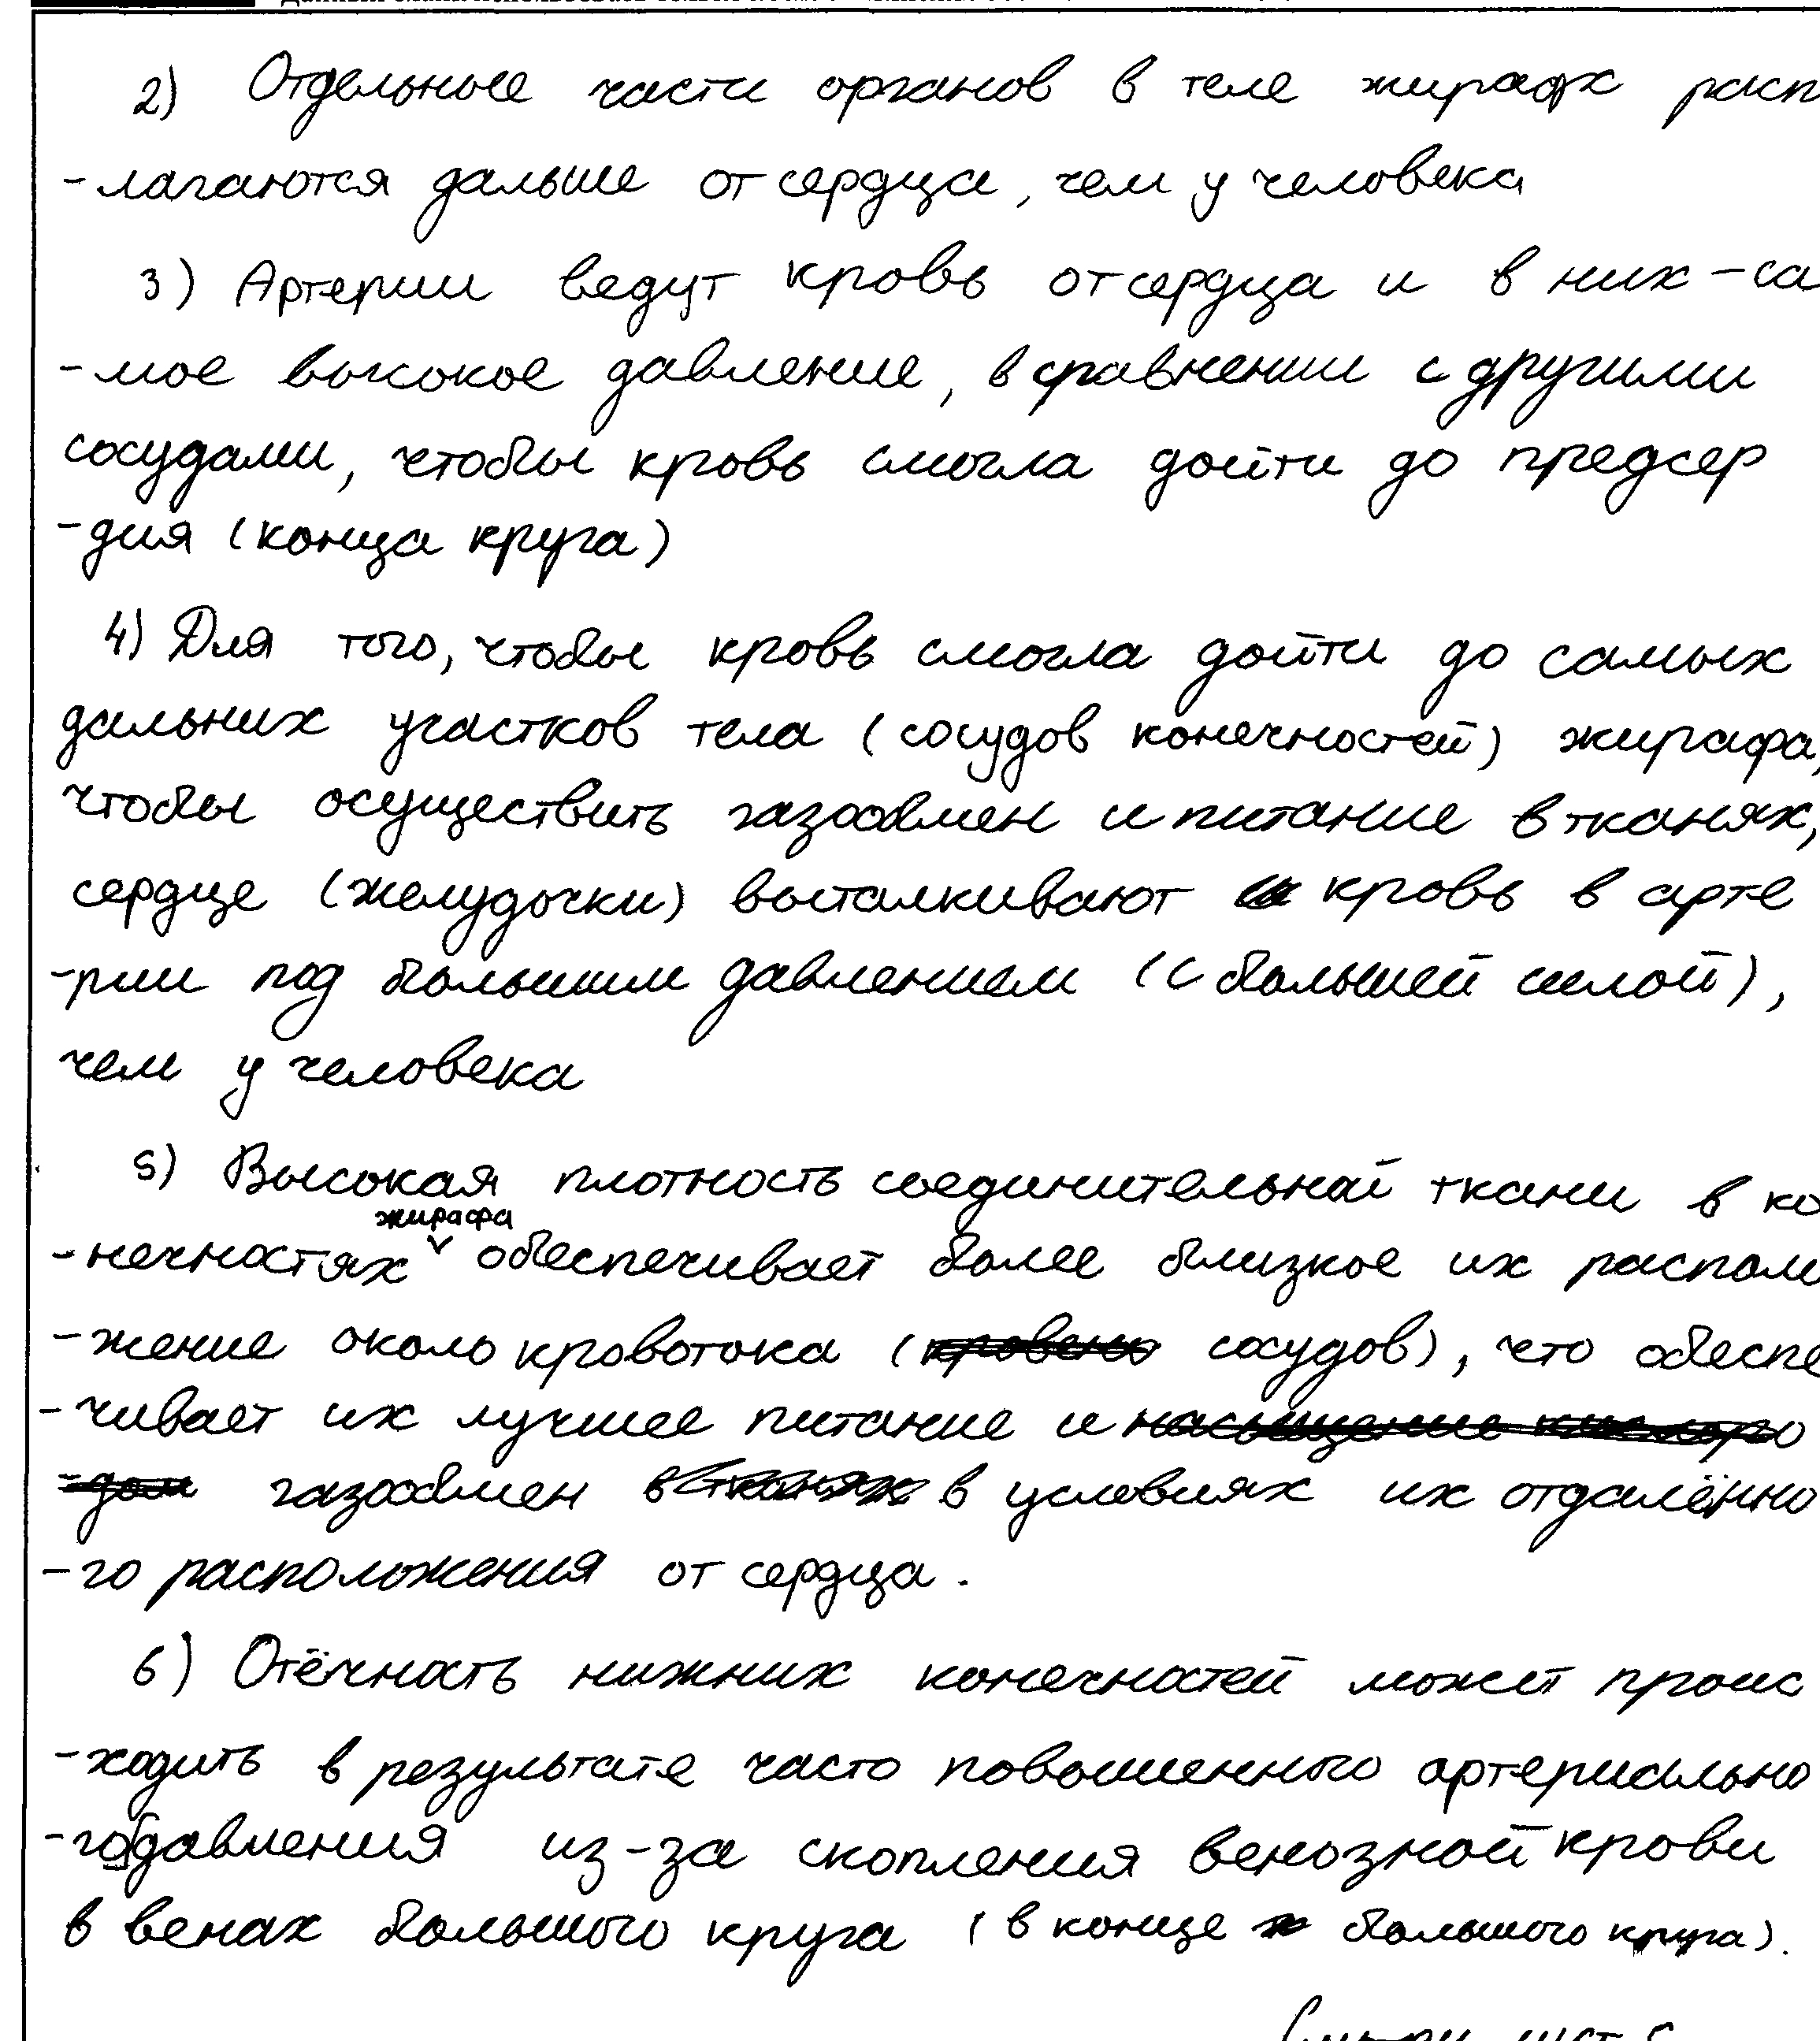 2) Отдельные части органов в теле жирафа расп
-лагаются дальше от сердца, чем у человека
3) Артерии ведут кровь от сердца и в них - са
-мое высокое давление, в сравнении с другими
сосудами, чтобы кровь смогла дойти до предсер
-дия (конца круга)
4) Для того, чтобы кровь смогла дойти до самых
дальних участков тела (сосудов конечностей) жирафа,
чтобы осуществить газообмен и питание в тканях,
сердце (желудочки) выталкивают кровь в арте
-рии под большим давлением (с большей силой),
чем у человека
5) Высокая плотность соединительной ткани в ко
жирафа
-нечностях обеспечивает более близкое их располо
-жение около кровотока (кровено сосудов), что обеспе
-чивает их лучшее питание и насыщение кислоро
-дом газообмен в тканях в условиях их отдалённо
-го расположения от сердца.
6) Отёчность нижних конечностей может проис
-ходить в результате часто повышенного артериально
-го давления из-за скопления венозной крови
в венах большого круга (в конце большого круга).